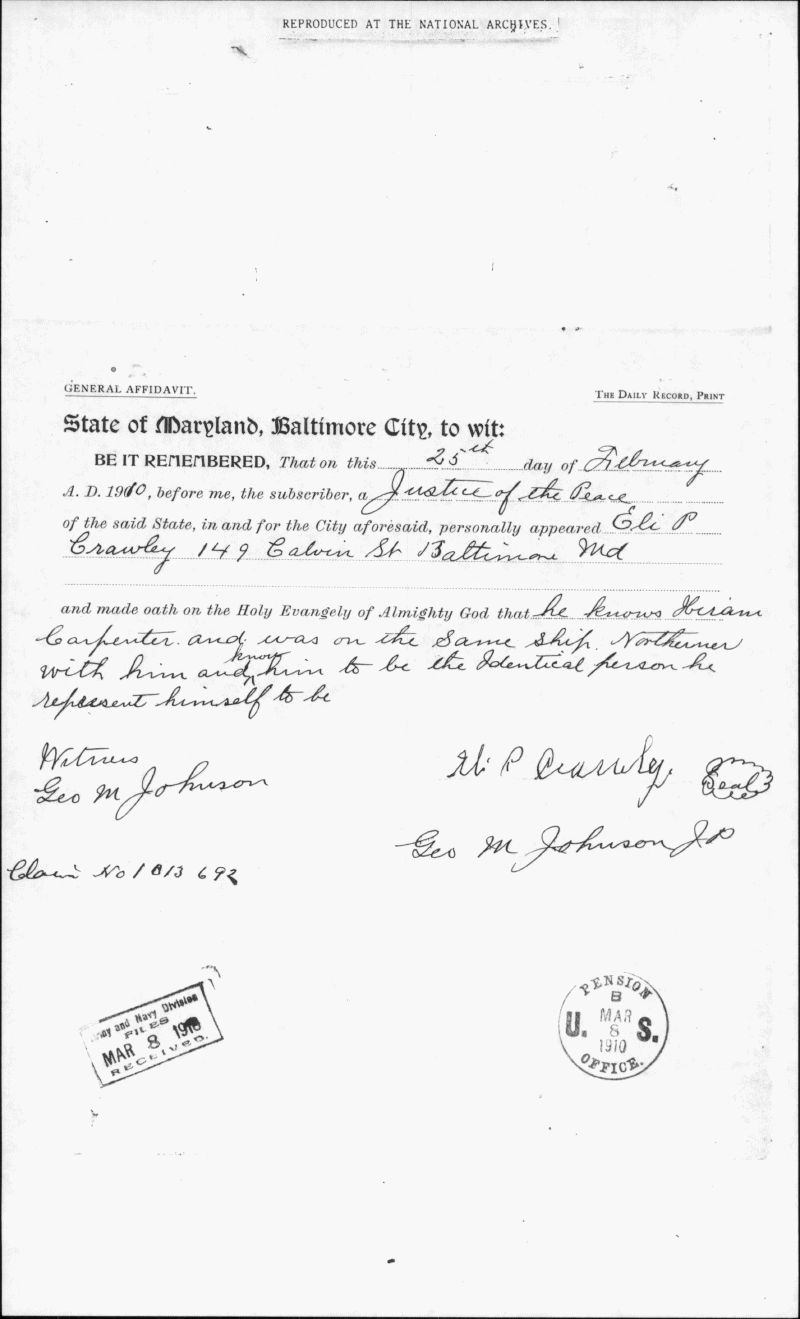 REPRODUCED AT THE NATIONAL ARCHIVES.
GENERAL AFFIDAVIT.
THE DAILY RECORD, PRINT
State of Maryland, Baltimore City, to wit:
BE IT REMEMBERED, That on this 25th day of February
A. D. 1910, before me, the subscriber, a Justice of the Peace
of the said State, in and for the City aforesaid, personally appeared Eli P
Crawley 149 Calvin St Baltimore Md
and made oath on the Holy Evangely of Almighty God that he knows Hiram
Carpenter. and was on the Same Ship. Northerner
with him and know him to be the Identical person he
represent himself to be
Witness
Geo M Johnson
Eli P Crawley.
Seal
Geo M Johnson JP
Claim No 1813 692
Army and Navy Division
FILES
MAR 8 1910
RECEIVED.
PENSION
B
U. MAR S.
8
1910
OFFICE.